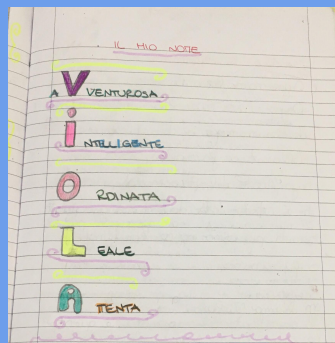 IL MIO NOME
AVVENTUROSA
INTELLIGENTE
ORDINATA
LEALE
ATTENTA